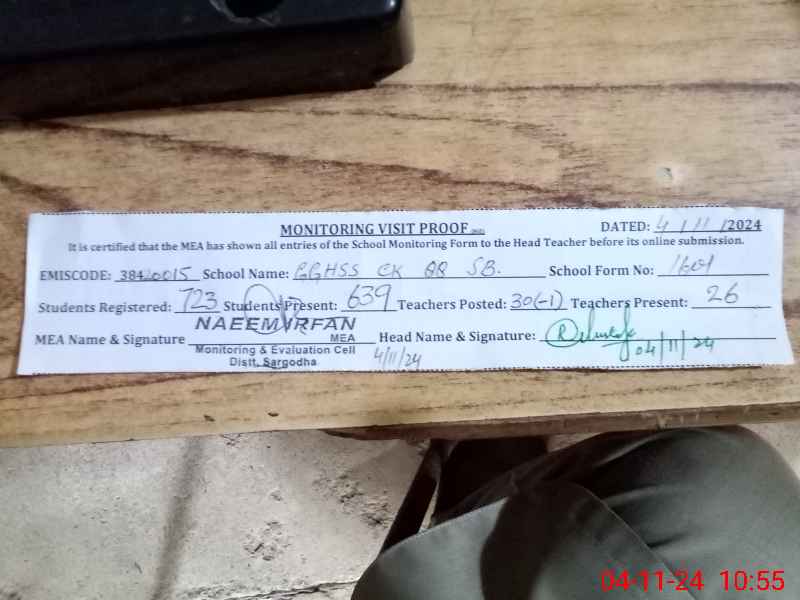 MONITORING VISIT PROOF DATED: 4/11/2024
It is certified that the MEA has shown all entries of the School Monitoring Form to the Head Teacher before its online submission.
EMISCODE: 38420015 School Name: GGHSS CK 88 SB. School Form No: 1601
Students Registered: 723 Students Present: 639 Teachers Posted: 30(-1) Teachers Present: 26
NAEEM IRFAN
MEA
MEA Name & Signature Head Name & Signature: 04/11/24
Monitoring & Evaluation Cell
Distt. Sargodha
4/11/24
04-11-24 10:55